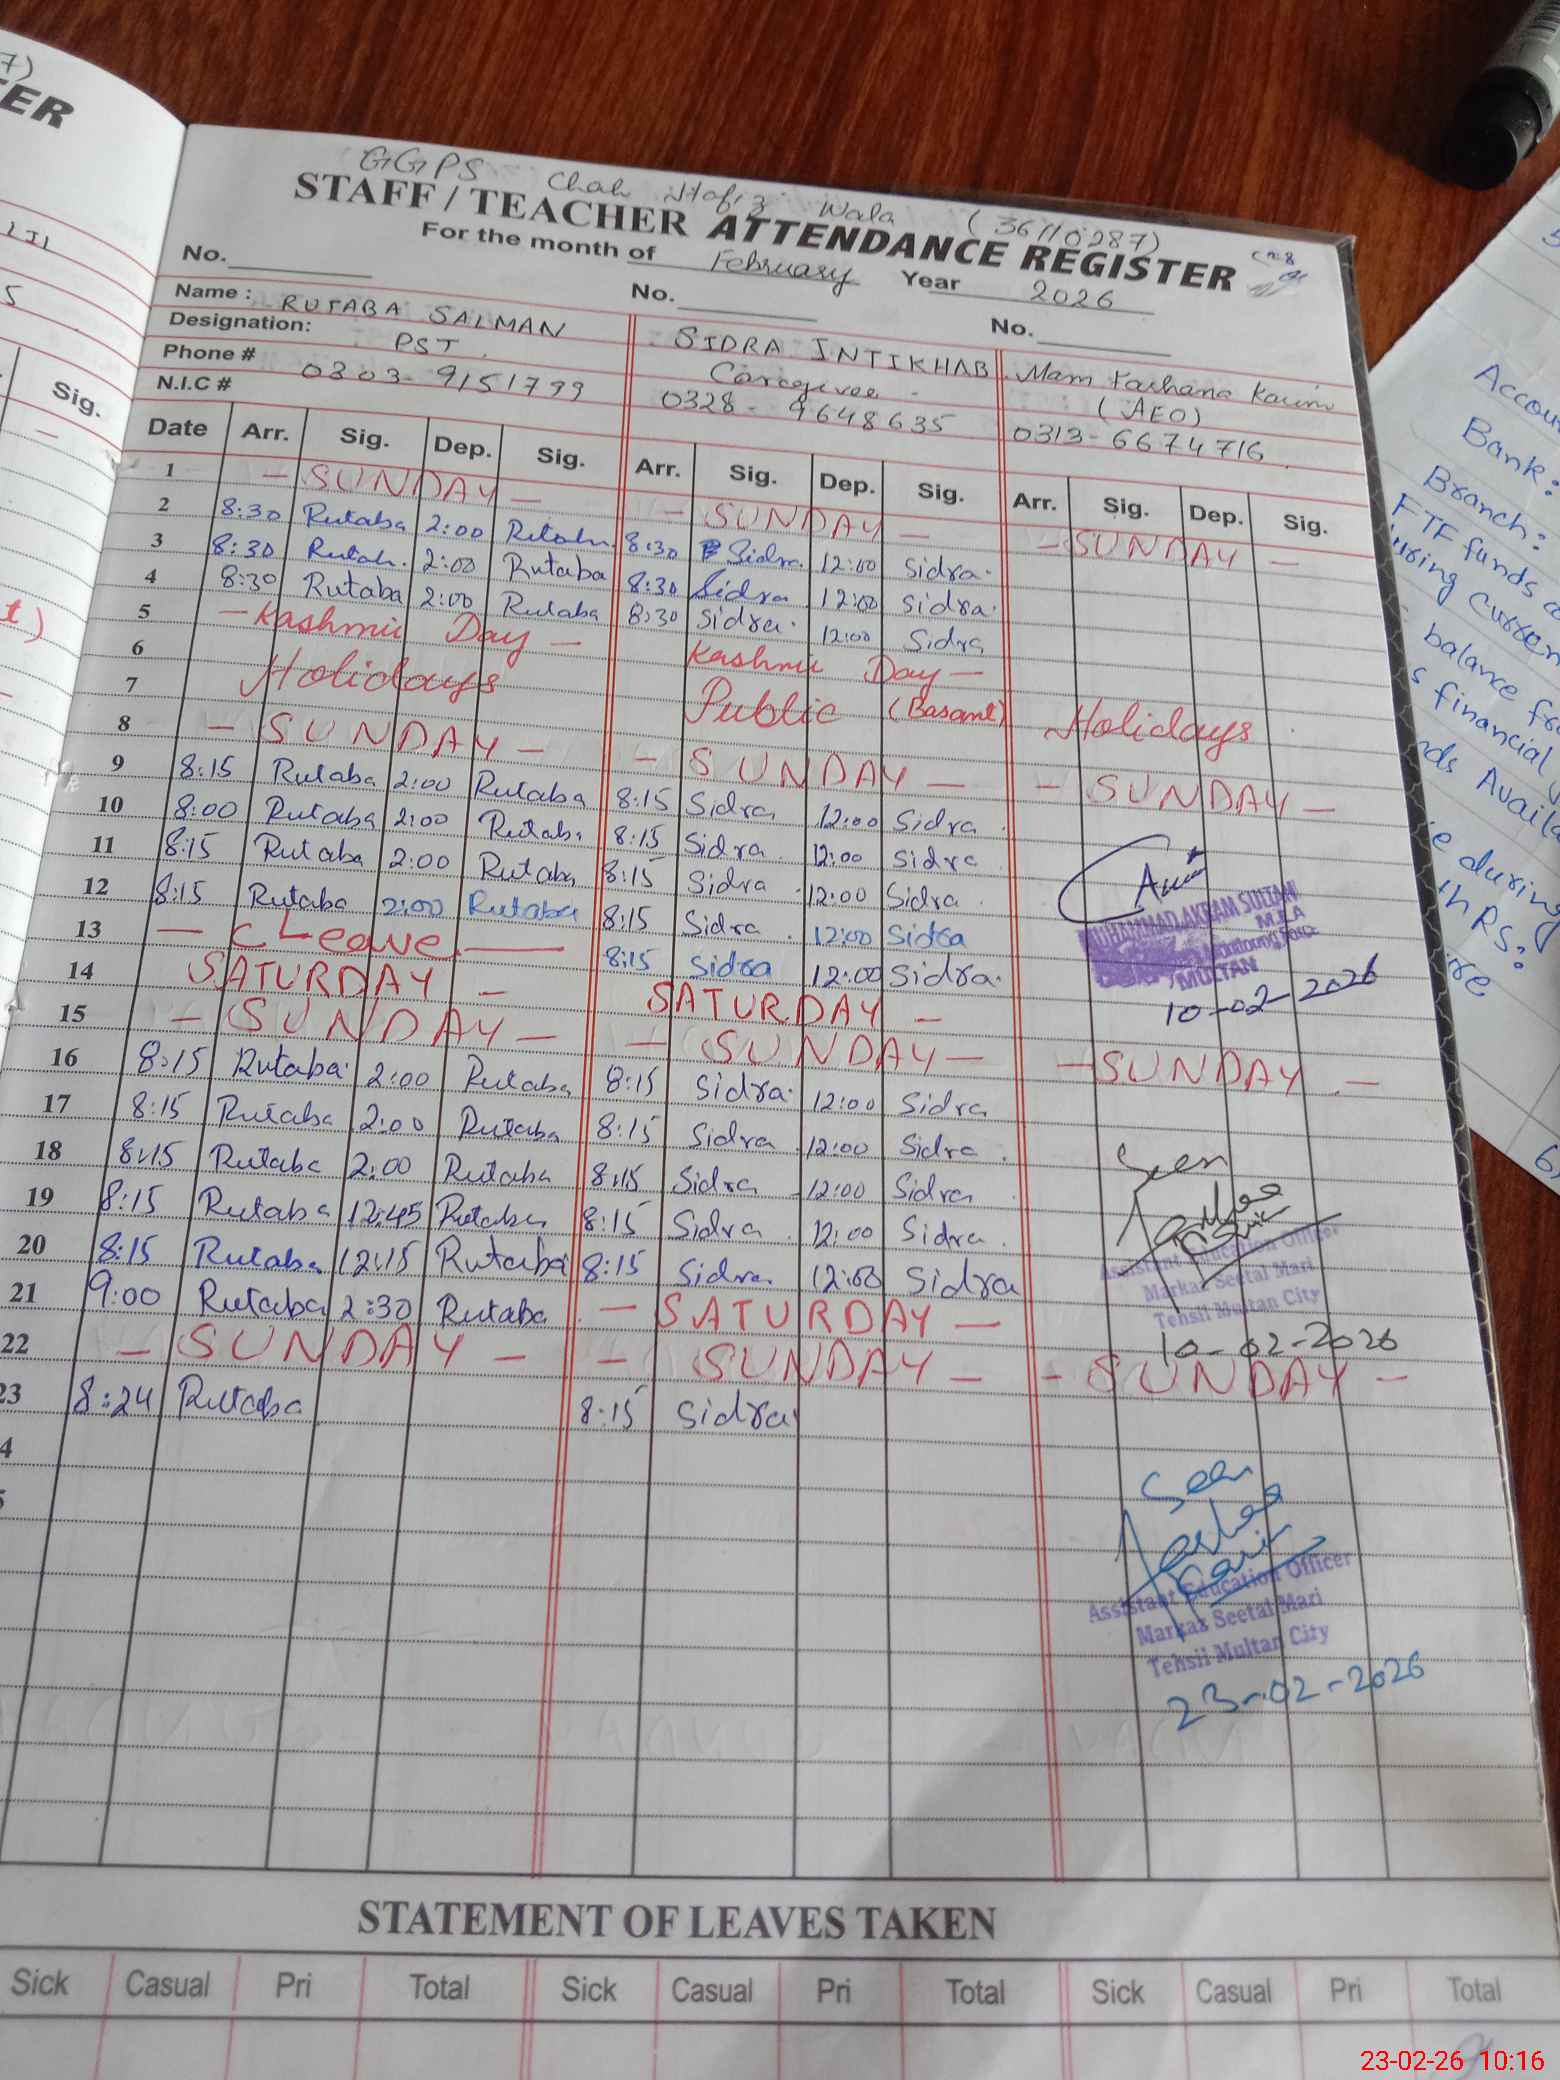 7)
ER
GGPS Chah Hafiz Wala (36110287)
STAFF / TEACHER ATTENDANCE REGISTER
For the month of February Year 2026
No. No. No.
Name : RUTABA SALMAN SIDRA INTIKHAB Mam Farhana Karim
Designation: PST Caregiver (AEO)
Phone # 0303-9151799 0328-9648635 0313-6674716
N.I.C #
Sig.
Date Arr. Sig. Dep. Sig. Arr. Sig. Dep. Sig. Arr. Sig. Dep. Sig.
1 - SUNDAY - - SUNDAY - - SUNDAY -
2 8:30 Rutaba 2:00 Rutaba 8:30 Sidra 12:00 Sidra
3 8:30 Rutab. 2:00 Rutaba 8:30 Sidra 12:00 Sidra
4 8:30 Rutaba 2:00 Rutaba 8:30 Sidra 12:00 Sidra
5 - Kashmir Day - Kashmir Day -
6 Holidays Public (Basant) Holidays
7
8 - SUNDAY - - SUNDAY - - SUNDAY -
9 8:15 Rutaba 2:00 Rutaba 8:15 Sidra 12:00 Sidra
10 8:00 Rutaba 2:00 Rutab. 8:15 Sidra 12:00 Sidra
11 8:15 Rutaba 2:00 Rutaba 8:15 Sidra 12:00 Sidra
12 8:15 Rutaba 2:00 Rutaba 8:15 Sidra 12:00 Sidra
13 - C Leave - 8:15 Sidra 12:00 Sidra
14 SATURDAY - SATURDAY -
15 - SUNDAY - - SUNDAY - - SUNDAY -
16 8:15 Rutaba 2:00 Rutaba 8:15 Sidra 12:00 Sidra
17 8:15 Rutaba 2:00 Rutaba 8:15 Sidra 12:00 Sidra
18 8:15 Rutaba 2:00 Rutaba 8:15 Sidra 12:00 Sidra
19 8:15 Rutaba 12:45 Rutaba 8:15 Sidra 12:00 Sidra
20 8:15 Rutaba 12:15 Rutaba 8:15 Sidra 12:00 Sidra
21 9:00 Rutaba 2:30 Rutaba - SATURDAY -
22 - SUNDAY - - SUNDAY - - SUNDAY -
23 8:24 Rutaba 8:15 Sidra
4
MUHAMMAD AKRAM SULTANI
M.E.A
MULTAN
10-02-2026
Seen
Assistant Education Officer
Markaz Seetal Mari
Tehsil Multan City
10-02-2026
Seen
Assistant Education Officer
Markaz Seetal Mari
Tehsil Multan City
23-02-2026
STATEMENT OF LEAVES TAKEN
Sick Casual Pri Total Sick Casual Pri Total Sick Casual Pri Total
Bank:
Branch:
FTF funds
balance
financial
during
RS:
23-02-26 10:16